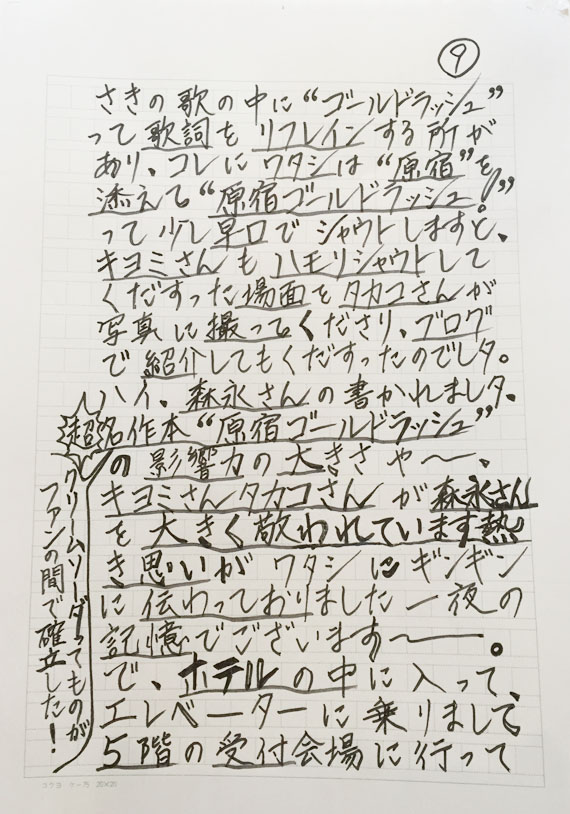 9
さきの歌の中に“ゴールドラッシュ”
って歌詞をリフレインする所が
あり、コレにワタシは“原宿”を
添えて“原宿ゴールドラッシュ！”
って少し早口でシャウトしますと、
キヨミさんもハモリシャウトして
くだすった場面をタカコさんが
写真に撮ってくださり、ブログ
で紹介してもくだすったのでしタ。
ハイ、森永さんの書かれましタ、
超名作本“原宿ゴールドラッシュ”
の影響力の大きさや〜、
キヨミさんタカコさんが森永さん
を大きく敬われています熱
き思いがワタシにギンギン
に伝わっておりました一夜の
記憶でございます〜。
で、ホテルの中に入って、
エレベーターに乗りまして、
5階の受付会場に行って
クリームソーダってものが
ファンの間で確立した！
コクヨ ケー75 20×20